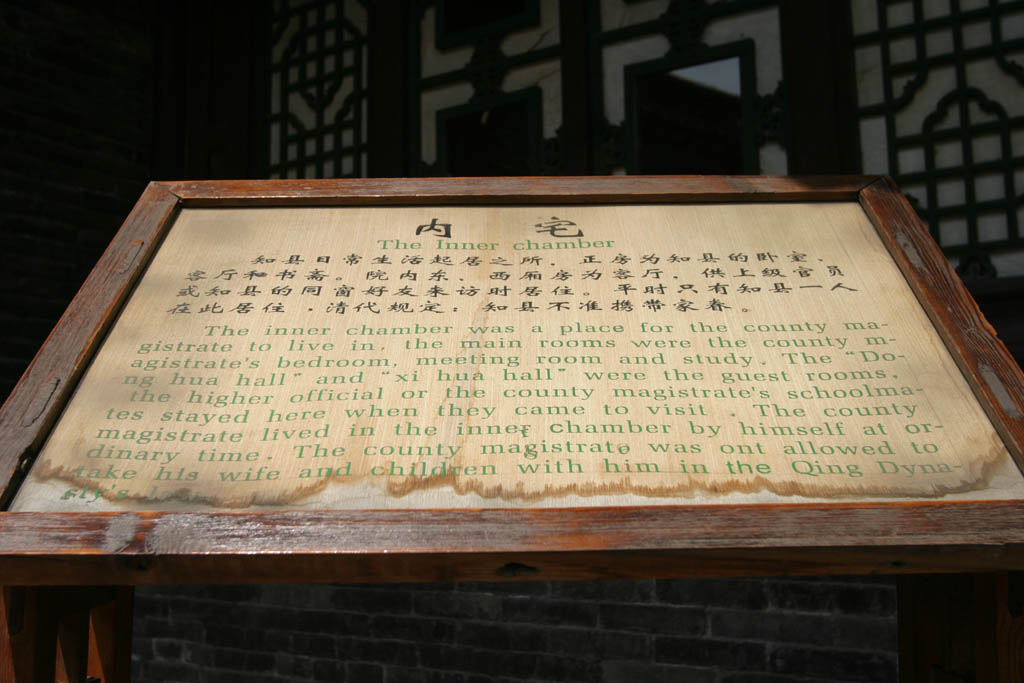 内 宅
The Inner chamber
知县日常生活起居之所，正房为知县的卧室、
客厅和书斋。院内东、西厢房为客厅，供上级官员
或知县的同窗好友来访时居住。平时只有知县一人
在此居住，清代规定：知县不准携带家眷。
The inner chamber was a place for the county ma-
gistrate to live in, the main rooms were the county m-
agistrate's bedroom, meeting room and study. The "Do-
ng hua hall" and "xi hua hall" were the guest rooms.
the higher official or the county magistrate's schoolma-
tes stayed here when they came to visit . The county
magistrate lived in the inner chamber by himself at or-
dinary time. The county magistrate was ont allowed to
take his wife and children with him in the Qing Dyna-
sty's